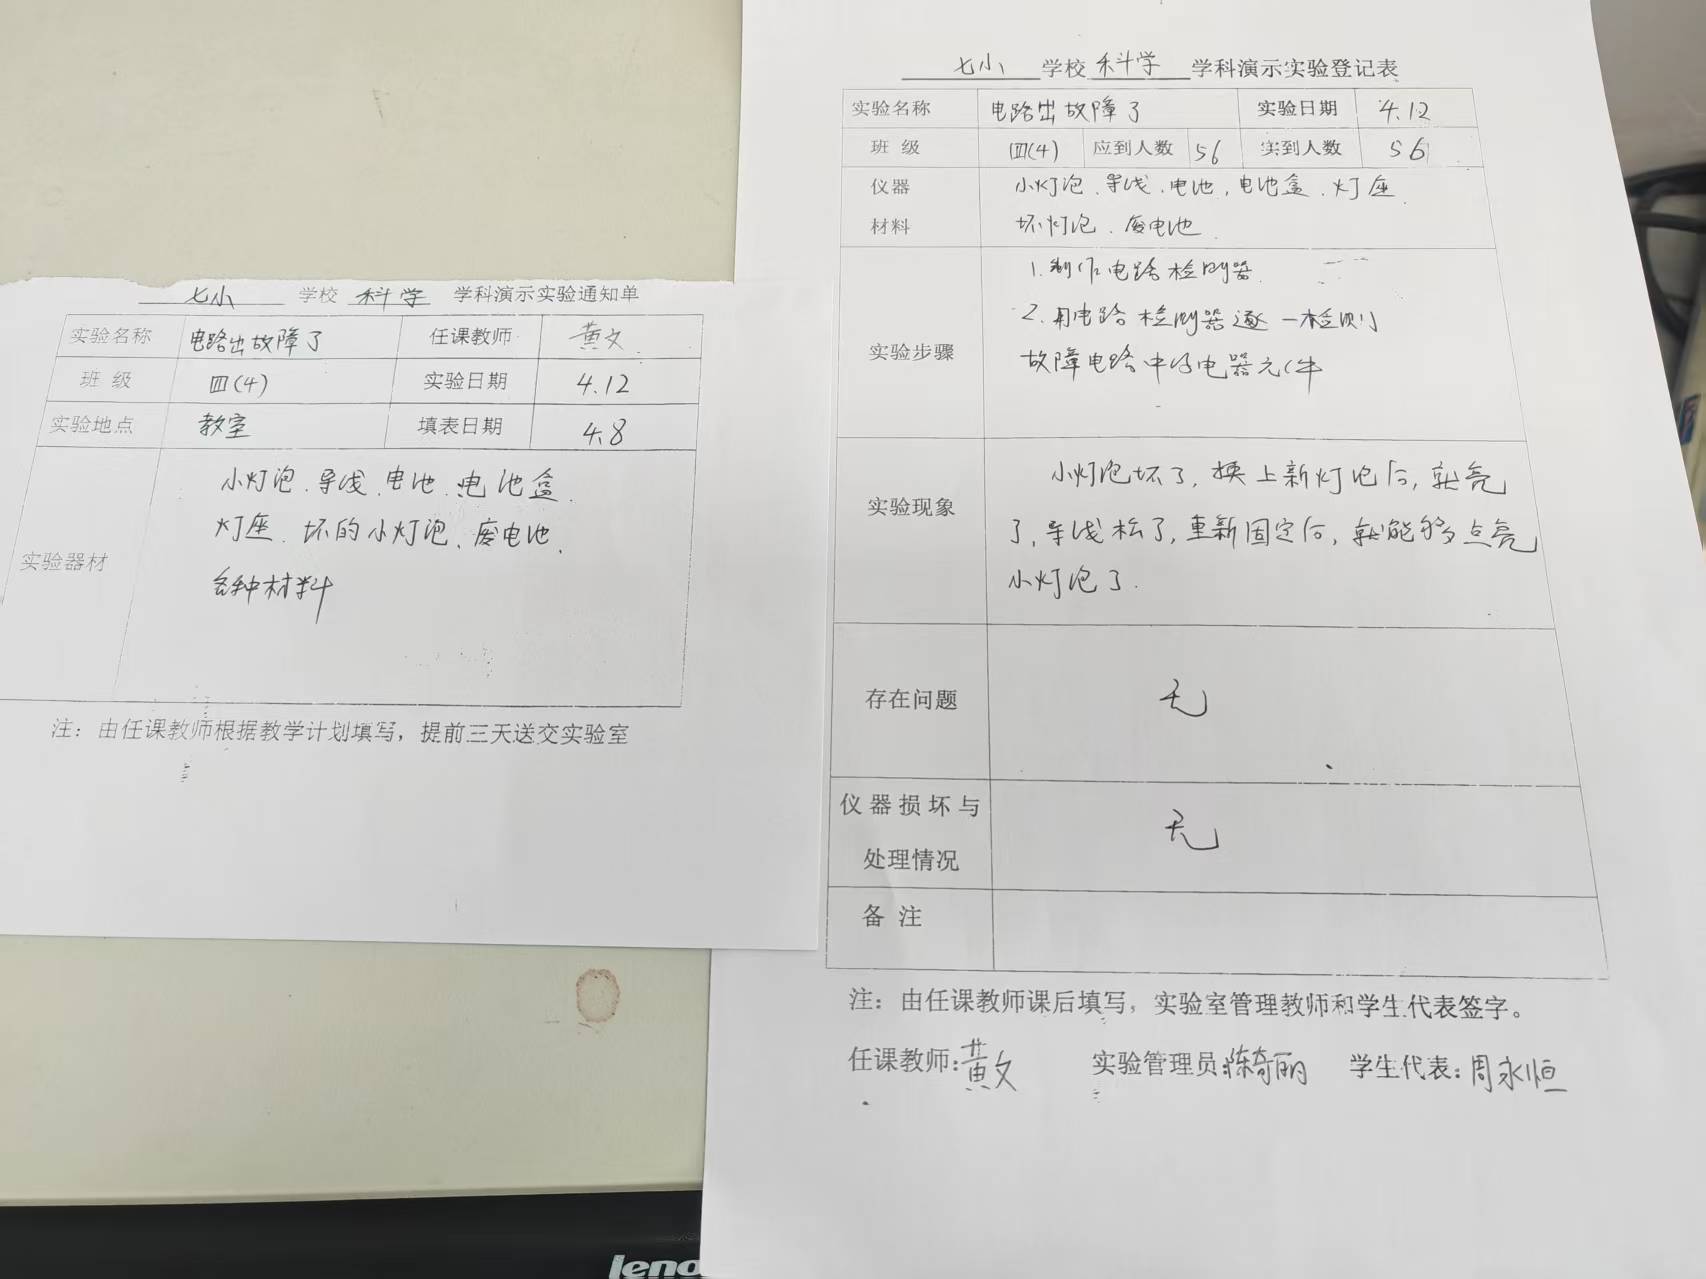 七小 学校 科学 学科演示实验通知单
实验名称 电路出故障了 任课教师 黄文
班 级 四(4) 实验日期 4.12
实验地点 教室 填表日期 4.8
实验器材
小灯泡、导线、电池、电池盒、
灯座、坏的小灯泡、废电池、
各种材料
注：由任课教师根据教学计划填写，提前三天送交实验室
七小 学校 科学 学科演示实验登记表
实验名称 电路出故障了 实验日期 4.12
班 级 四(4) 应到人数 56 实到人数 56
仪器 小灯泡、导线、电池、电池盒、灯座、
材料 坏灯泡、废电池.
实验步骤
1.制作电路检测器.
2.用电路检测器逐一检测
故障电路中的电器元件
实验现象
小灯泡坏了，换上新灯泡后，就亮
了，导线松了，重新固定后，就能够点亮
小灯泡了.
存在问题 无
仪器损坏与
处理情况
无
备 注
注：由任课教师课后填写，实验室管理教师和学生代表签字。
任课教师:黄文 实验管理员:陈奇丽 学生代表:周永恒
leno